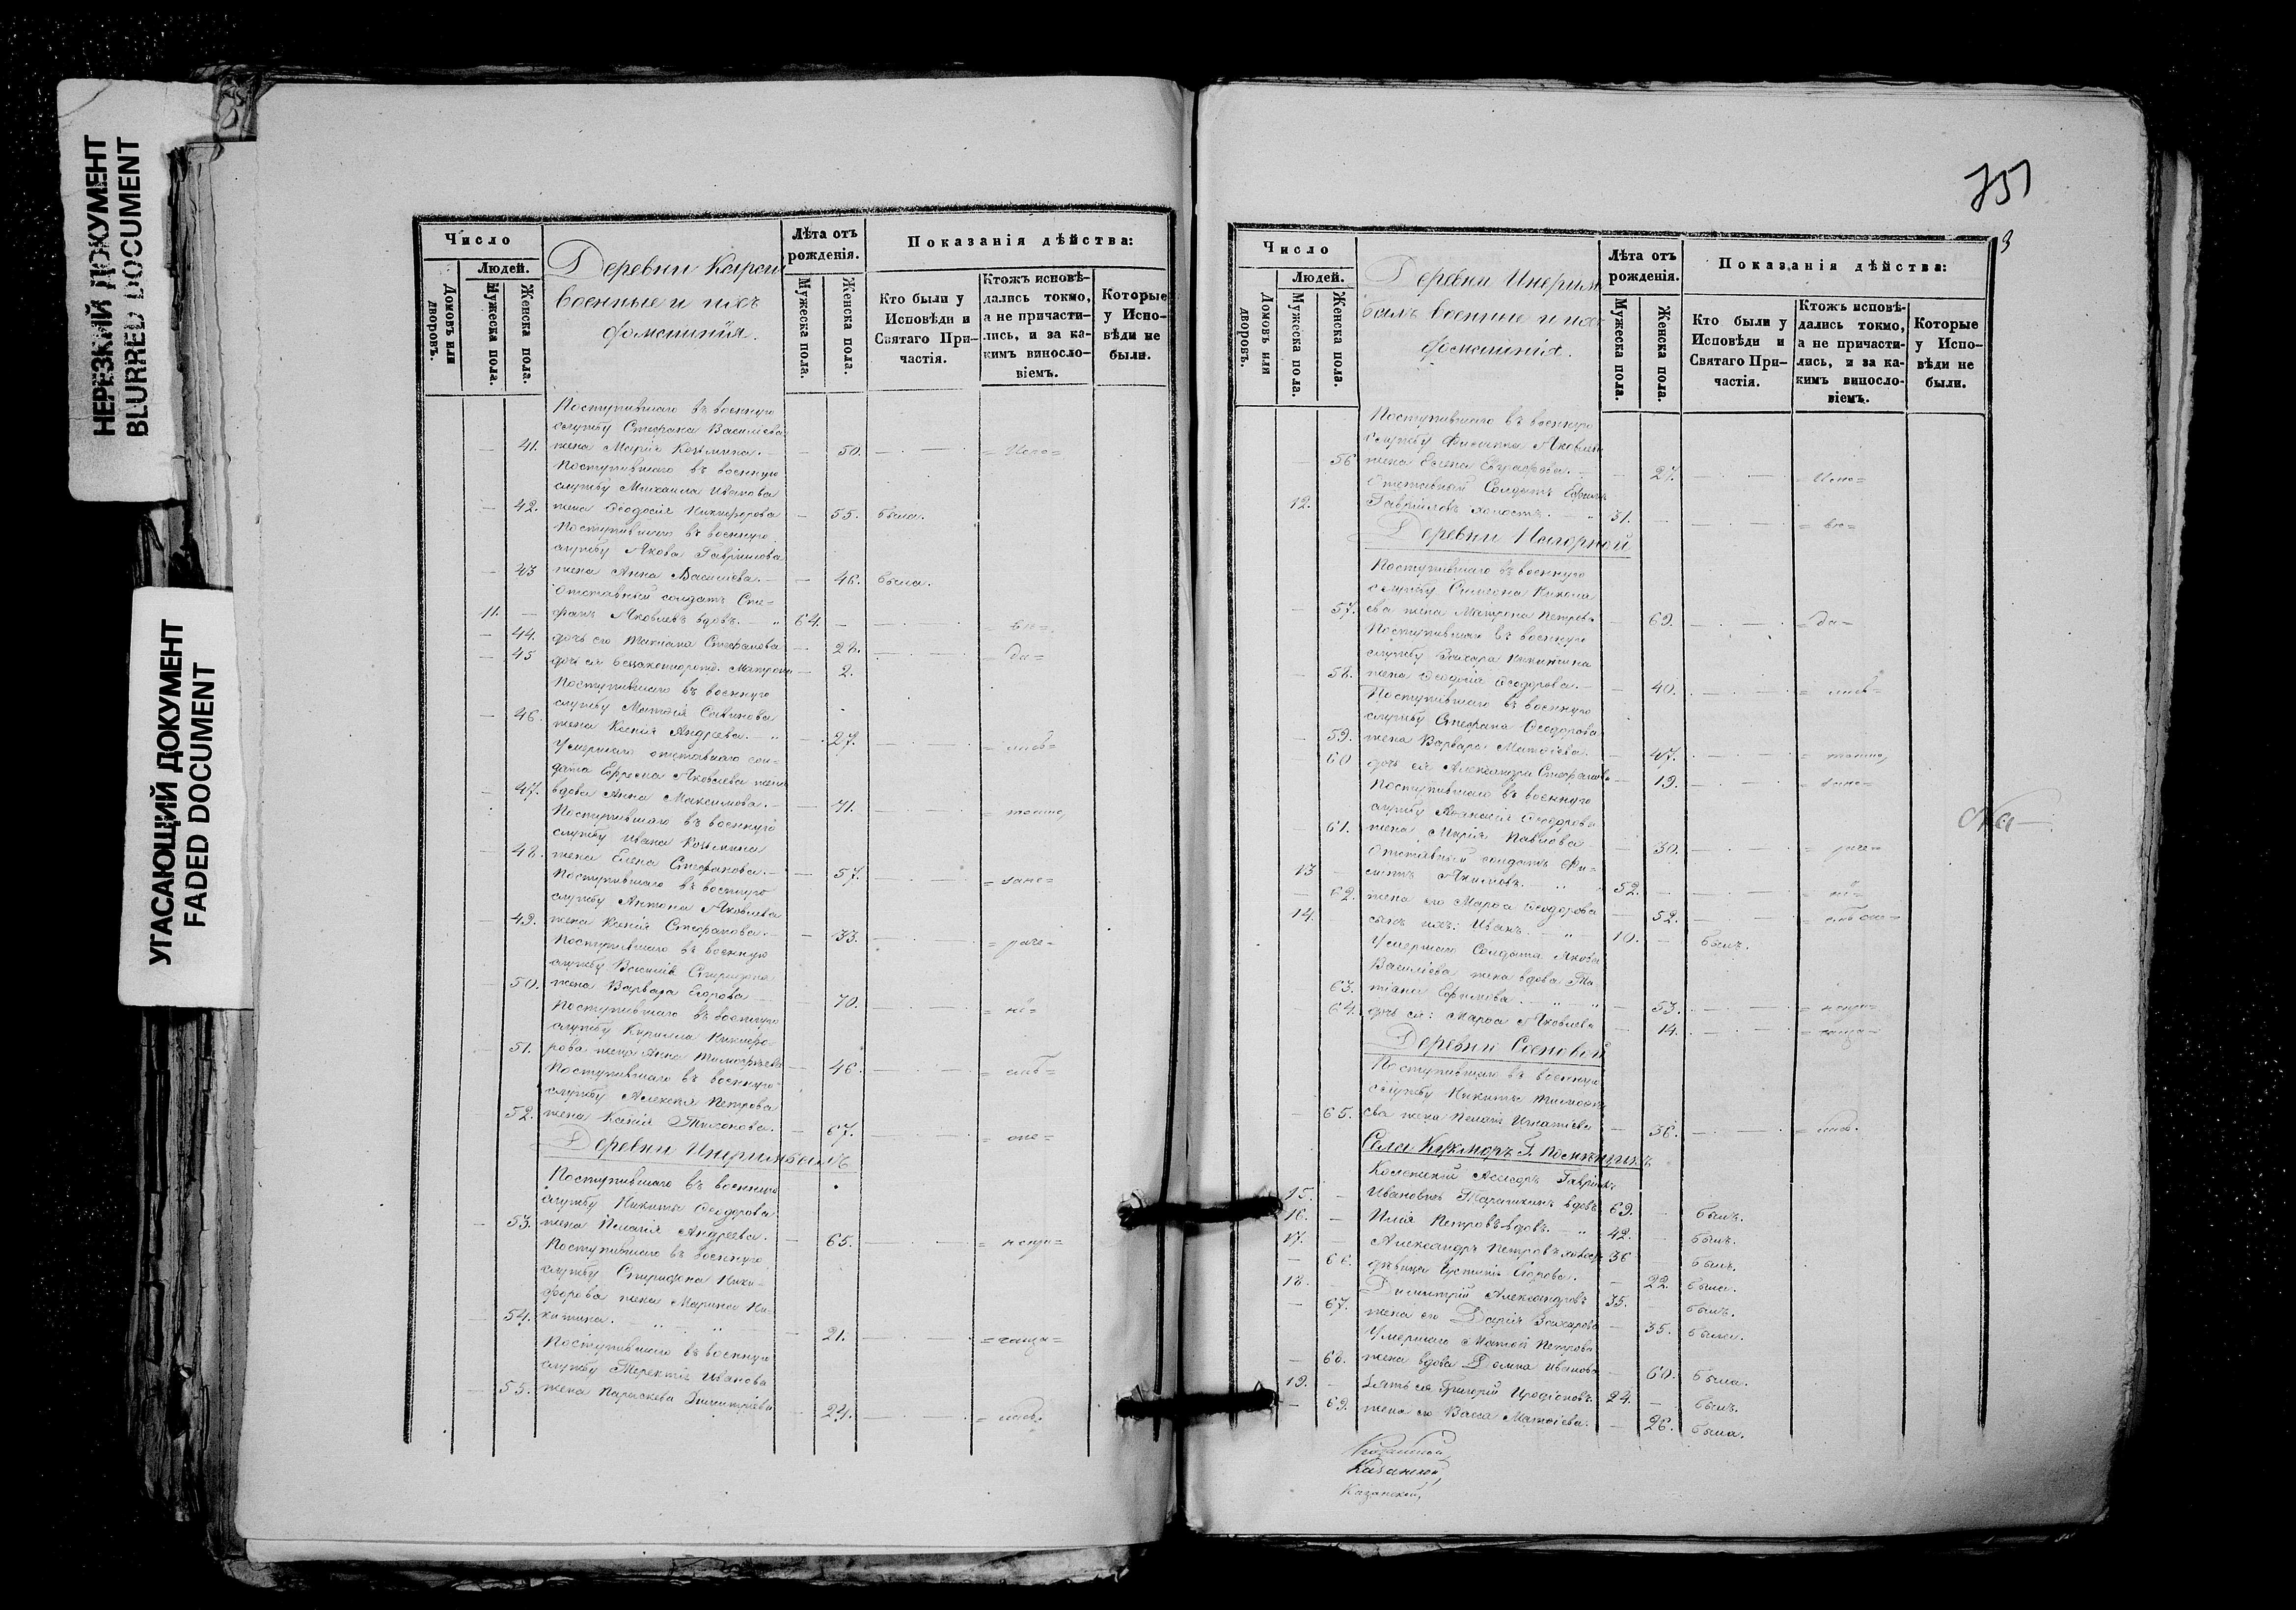 НЕРЕЗКИЙ ДОКУМЕНТ
BLURRED DOCUMENT
УГАСАЮЩИЙ ДОКУМЕНТ
FADED DOCUMENT
Число
Домовъ или дворовъ.
Людей.
Мужеска пола.
Женска пола.
Деревни
военные и ихъ
Лѣта отъ рожденія.
Мужеска пола.
Женска пола.
Показанія дѣйства:
Кто были у Исповѣди и Святаго При-
частія.
Ктожъ исповѣ-
дались токмо,
а не причасти-
лись, и за ка-
кимъ виносло-
віемъ.
Которые
у Испо-
вѣди не
были.
Поступившаго въ военную
службу Стефана Василіева
41. жена Марія Козьмина. 50.
Поступившаго въ военную
службу Михаила Иванова
42. жена Ѳеодосія Никифорова 55. была.
Поступившаго въ военную
службу Якова Гавріилова
43 жена Анна Василіева. 46. была.
Отставный солдатъ Сте-
11. фанъ Яковлевъ вдовъ. 64.
44. дочь его Татіана Стефанова 28.
45 дочь ея 2.
Поступившаго въ военную
службу Матѳея Саввинова
46. жена Ксенія Андреева. 27.
Умершаго отставнаго сол-
дата Ефрема Яковлева жена
47. вдова Анна Максимова. 71.
Поступившаго въ военную
службу Ивана Козьмина
48. жена Елена Стефанова. 57.
Поступившаго въ военную
службу Антона Яковлева
49. жена Ксенія Стефанова. 33.
Поступившаго въ военную
службу Василія Спиридона
50. жена Варвара Егорова 70.
Поступившаго въ военную
службу Кирилла Никифо-
51. рова жена Анна Тимофѣева 46.
Поступившаго въ военную
службу Алексѣя Петрова
52. жена Ксенія Тихонова. 67.
Деревни
Поступившаго въ военную
службу Никиты Ѳеодорова
53. жена Пелагія Андреева. 65.
Поступившаго въ военную
службу Спиридона Ники-
форова жена Марина Ни-
54. китина. 21.
Поступившаго въ военную
службу Терентія Иванова
55. жена Параскева Димитріева 24.
751
3
Число
Домовъ или дворовъ.
Людей.
Мужеска пола.
Женска пола.
Деревни
военные и ихъ
Лѣта отъ рожденія.
Мужеска пола.
Женска пола.
Показанія дѣйства:
Кто были у
Исповѣди и
Святаго При-
частія.
Ктожъ исповѣ-
дались токмо,
а не причасти-
лись, и за ка-
кимъ виносло-
віемъ.
Которые
у Испо-
вѣди не
были.
Поступившаго въ военную
службу Филиппа Яковлева
56 жена Елена Евграфова. 27.
Отставный Солдатъ Ефимъ
12. Гавріиловъ холостъ. 31.
Деревни Нагорной
Поступившаго въ военную
службу Симеона Никола
57. ева жена Матрона Петрова 69.
Поступившаго въ военную
службу Захара Никитина
58. жена Ѳеодосія Ѳеодорова. 40.
Поступившаго въ военную
службу Стефана Ѳеодорова
59. жена Варвара Матѳіева. 47.
60 дочь ея Александра Стефанова 19.
Поступившаго въ военную
службу Аѳанасія Ѳеодорова
61. жена Марія Павлова 30.
Отставный солдатъ Фи-
13 липъ Якимовъ. 52.
62. жена его Марѳа Ѳеодорова 52.
14. сынъ ихъ: Иванъ. 10. былъ.
Умершаго Солдата Якова
Василіева жена вдова Та-
63. тіана Ефимова. 53.
64. дочь ея: Марѳа Яковлева 14.
Деревни Сосновой
Поступившаго въ военную
службу Никиты
65. ева жена Пелагія Игнатіева 36.
Села Кукморъ Г. Помѣщикъ
Колежскій Асесоръ Гавріилъ
15. Ивановичъ вдовъ 69. былъ.
16. Илія Петровъ вдовъ. 42. былъ.
17. Александръ Петровъ холостъ 36 былъ.
66. дѣвица Устинія Егорова. 22. была.
18. Димитрій Александровъ 35. былъ.
67. жена его Дарія Захарова 35. была.
Умершаго Матѳія Петрова
68. жена вдова Домна Иванова 60. была.
19. Зять ея Григорій Иродіоновъ. 24. былъ.
69. жена его Васса Матѳіева. 26. была.
Казанской,
Казанской,
Казанской,